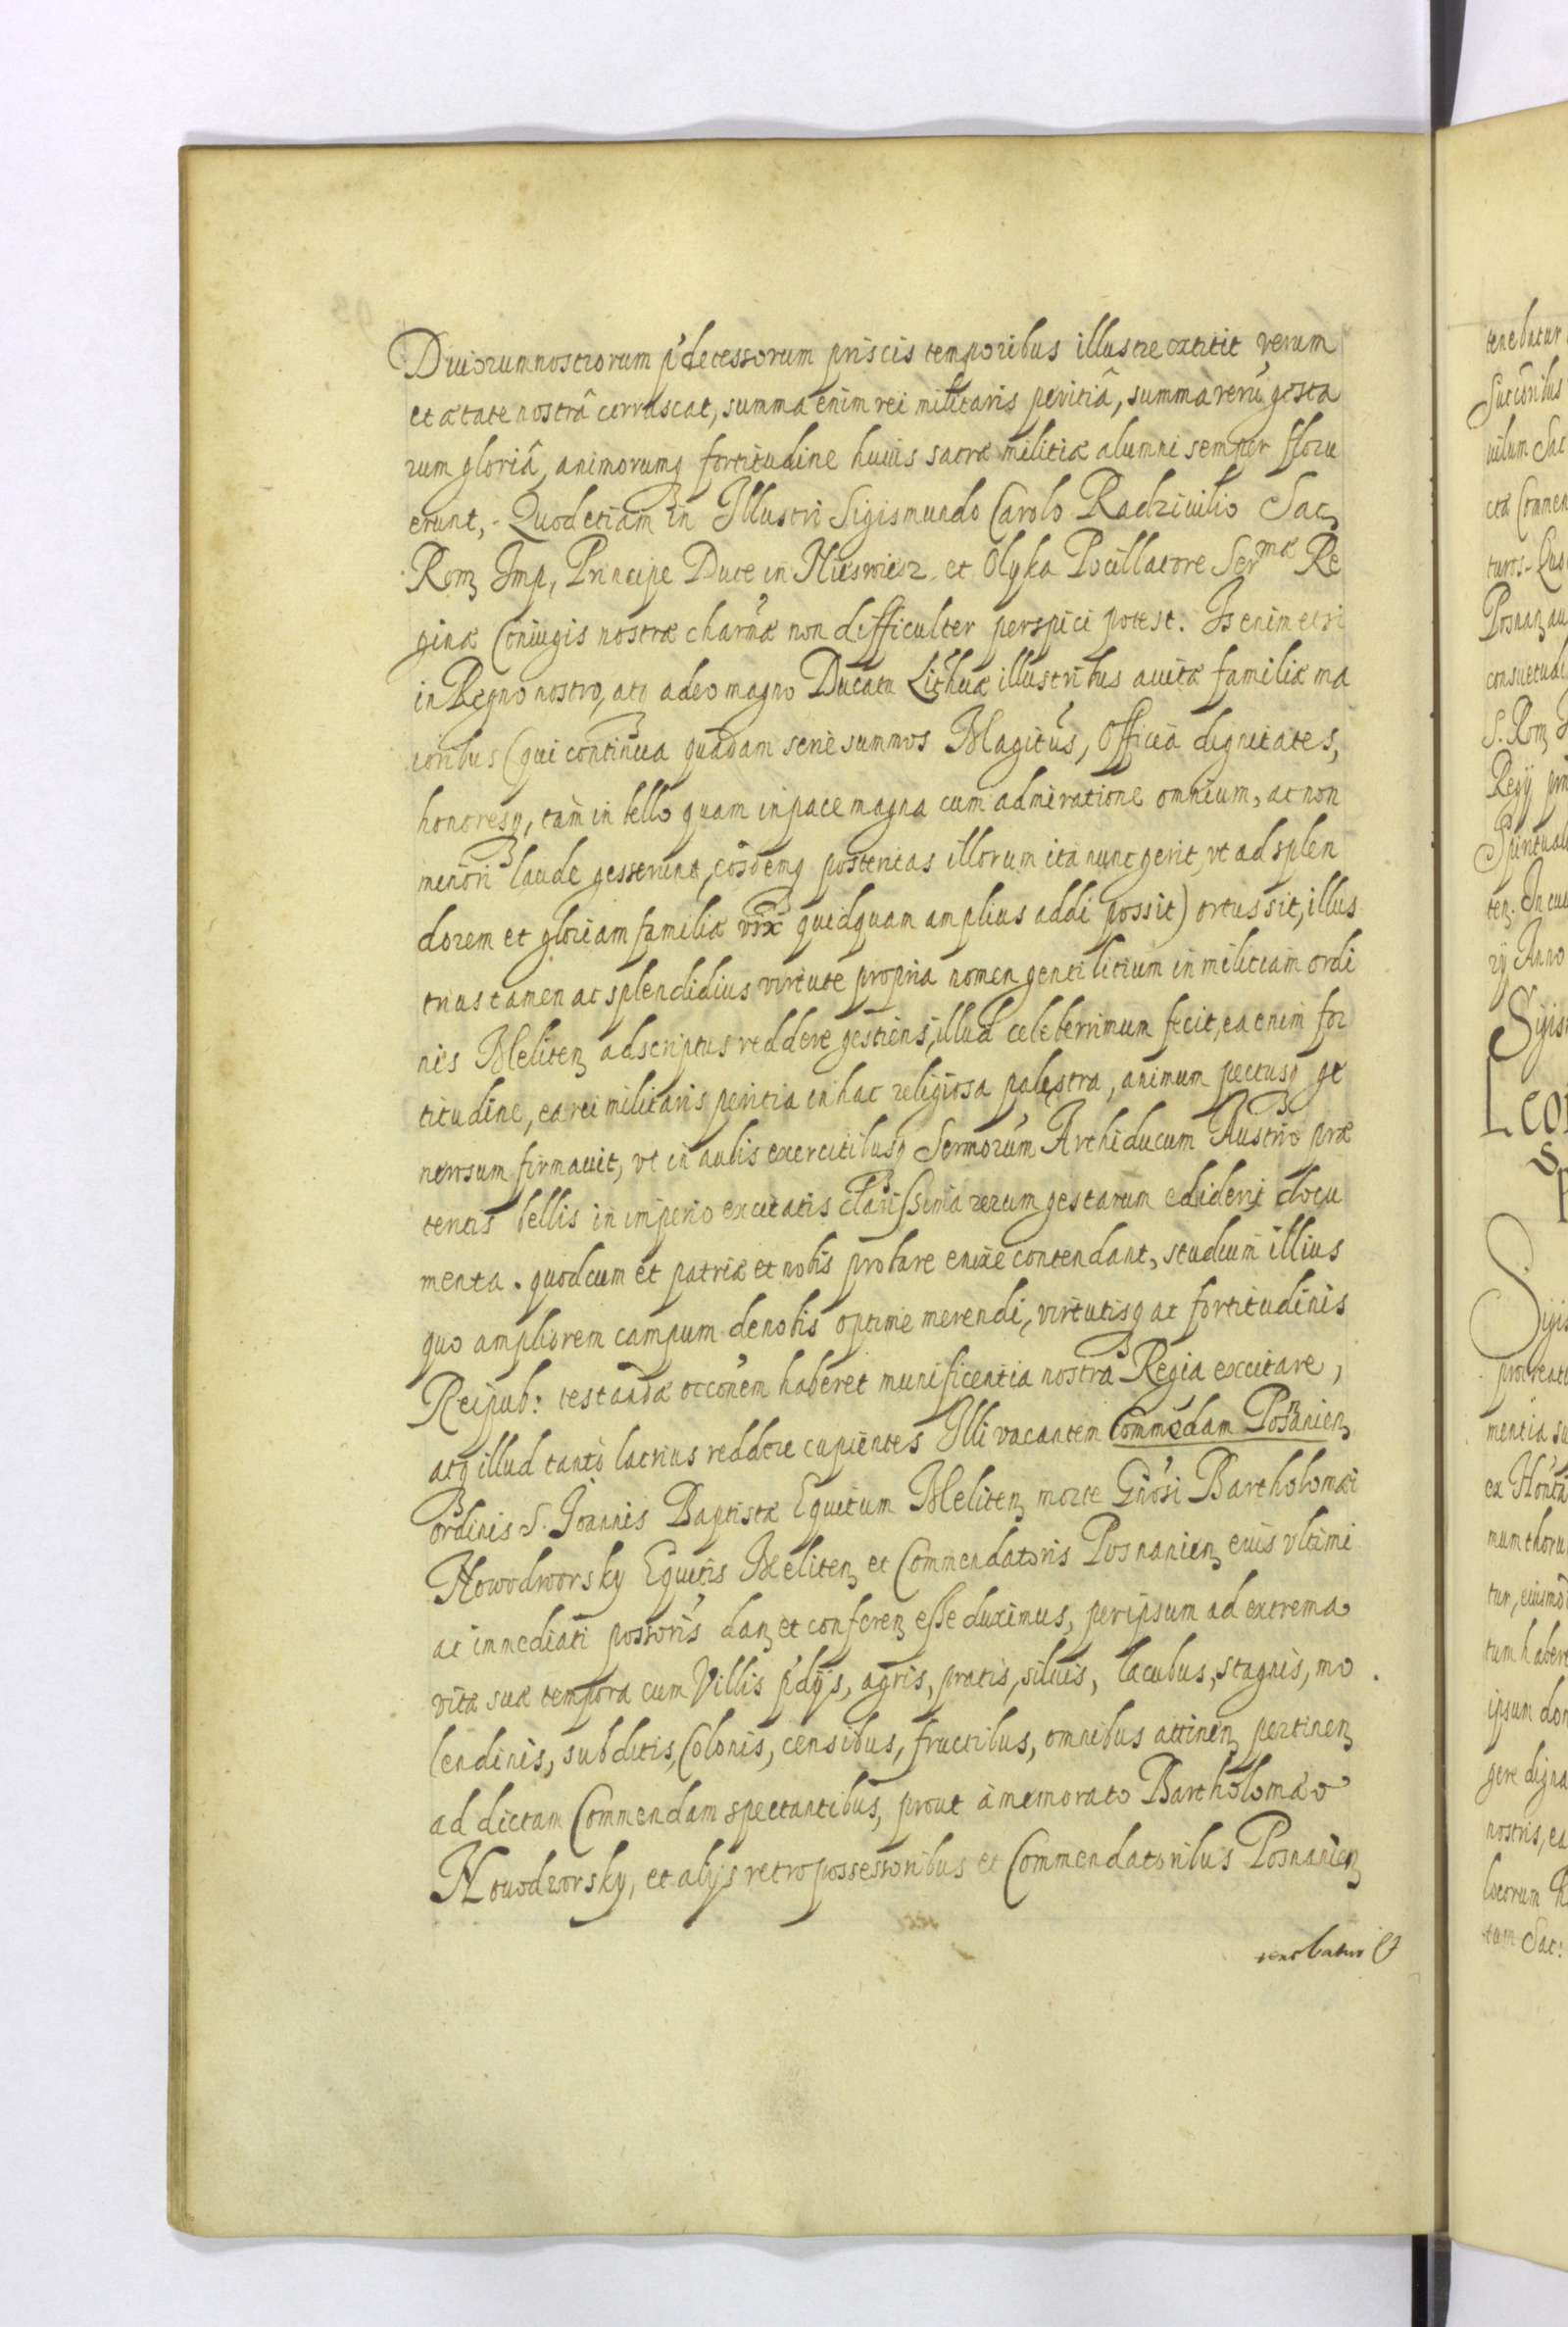 Diuiorum nostrorum p'decessorum priscis temporibus illustre extitit verum
et ætate nostrâ corruscat, summa enim rei militaris peritiâ, summa rerū gesta
rum gloriâ, animorumq fortitudine huius sacræ militiæ alumni semper floru
erunt, Quod etiam in Illustri Sigismundo Carolo Radziuilio Sac
Rom Imp, Principe Duce in Nieswiez et Olyka Pocillatore Ser^mæ Re
ginæ Coniugis nostræ char̄mæ non difficulter perspici potest. Is enim etsi
in Regno nostro, atq adeo magno Ducatu Lithuæ illustribus auitæ familiæ ma
ioribus (qui continua quadam serie summos Magītus, Officia dignitates,
honoresq, tam in bello quam in pace magna cum admiratione omnium, ac non
minori laude gesserunt, eosdemq posteritas illorum ita nunc gerit, vt ad splen
dorem et gloriam familiæ vix quidquam amplius addi possit) ortus sit, illus
trius tamen ac splendidius virtute propria nomen gentilitium in militiam ordi
nis Meliten adscriptus reddere gestiens, illud celeberrimum fecit, ea enim for
titudine, ea rei militaris peritia in hac religiosa palestra, animum pectusq ge
nerosum firmauit, vt in aulis exercitibusq Sermorum Archiducum Austriæ præ
teritis bellis in imperio excitatis clarissima rerum gestarum ediderit docu
menta. quod cum et patriæ et nobis probare enixe contendant, studium illius
quo ampliorem campum de nobis optime merendi, virtutisq ac fortitudinis
Reipub: testandæ occōnem haberet munificentia nostra Regia excitare,
atq illud tanto lætius reddere cupientes Illi vacantem Commēdam Posnanien
ordinis S. Joannis Baptistæ Equitum Meliten morte Gnosi Bartholomæi
Nowodworsky Equitis Meliten et Commendatoris Posnanien eius vltimi
ac immediati possoris dan et conferen esse duximus, per ipsum ad extrema
vitæ suæ tempora cum Villis p'dijs, agris, pratis, siluis, lacubus, stagnis, mo
lendinis, subditis, Colonis, censibus, fructibus, omnibus attinen pertinen
ad dictam Commendam spectantibus, prout à memorato Bartholomæo
Nouodworsky, et alijs retro possessoribus et Commendatoribus Posnanien
tenebatur &